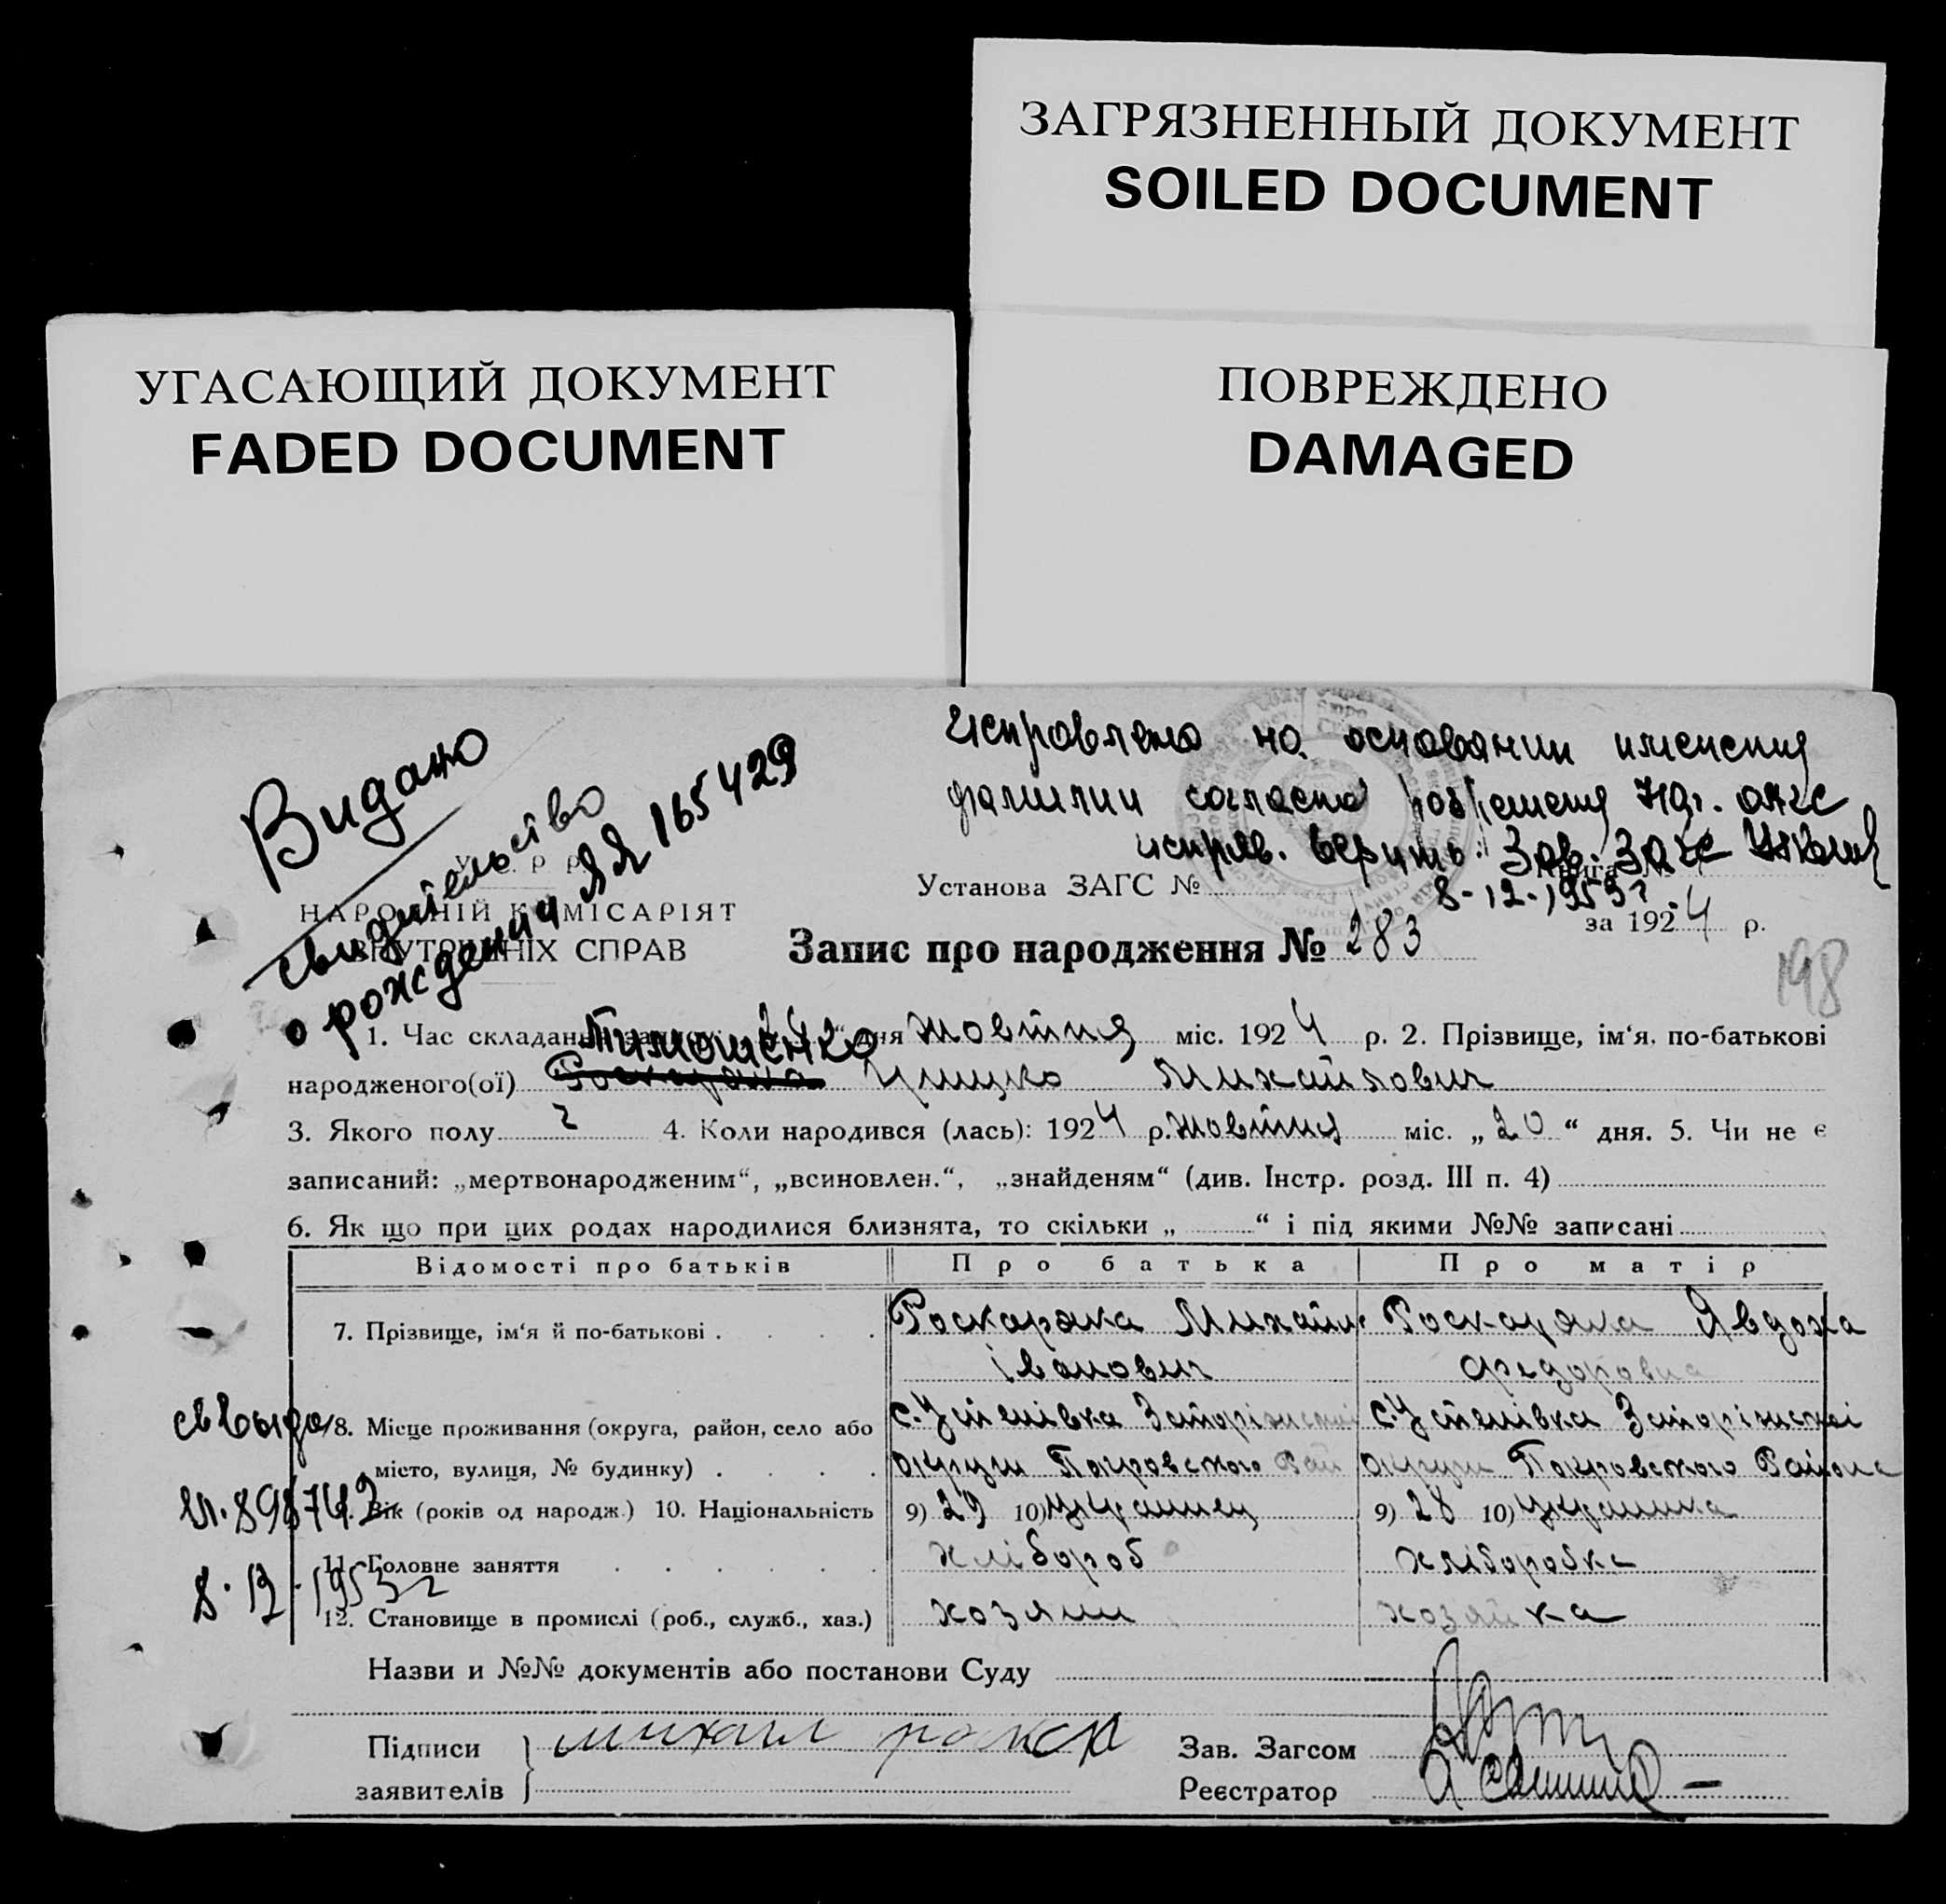 ЗАГРЯЗНЕННЫЙ ДОКУМЕНТ
SOILED DOCUMENT
УГАСАЮЩИЙ ДОКУМЕНТ
FADED DOCUMENT
ПОВРЕЖДЕНО
DAMAGED
Исправлено на основании изменения
фамилии согласно
исправ. верить. Зав. Загс
8-12-1953г.
Видано
свидетельство
о рождении ЯЯ 165429
У. Р Р
НАРОДНІЙ КОМІСАРІЯТ
ВНУТРІШНІХ СПРАВ
Установа ЗАГС №
Книга №
за 1924 р.
Запис про народження № 283
198
1. Час складання дня Жовтня міс. 1924 р. 2. Прізвище, ім'я, по-батькові
Тимошенко
народженого(ої) Роскаряка Грицько Михайлович
3. Якого полу ч 4. Коли народився (лась): 1924 р. Жовтня міс. „20“ дня. 5. Чи не є
записаний: „мертвонародженим“, „всиновлен.“, „знайденям“ (див. Інстр. розд. III п. 4)
6. Як що при цих родах народилися близнята, то скільки „ “ і під якими №№ записані
Відомості про батьків Про батька Про матір
7. Прізвище, ім'я й по-батькові Роскаряка Михайло Роскаряка Явдоха
Іванович Федоровна
8. Місце проживання (округа, район, село або с. Успенівка Запоріжської с. Успенівка Запоріжскої
місто, вулиця, № будинку) округи Покровського Рай округи Покровського Района
Вік (років од народж.) 10. Національність 9) 29 10) Украинец 9) 28 10) Украинка
11. Головне заняття хлібороб хліборобка
12. Становище в промислі (роб., служб., хаз.) хозяин хозяйка
8.12.1953г
Назви и №№ документів або постанови Суду
Підписи заявителів михаил
Зав. Загсом
Реєстратор